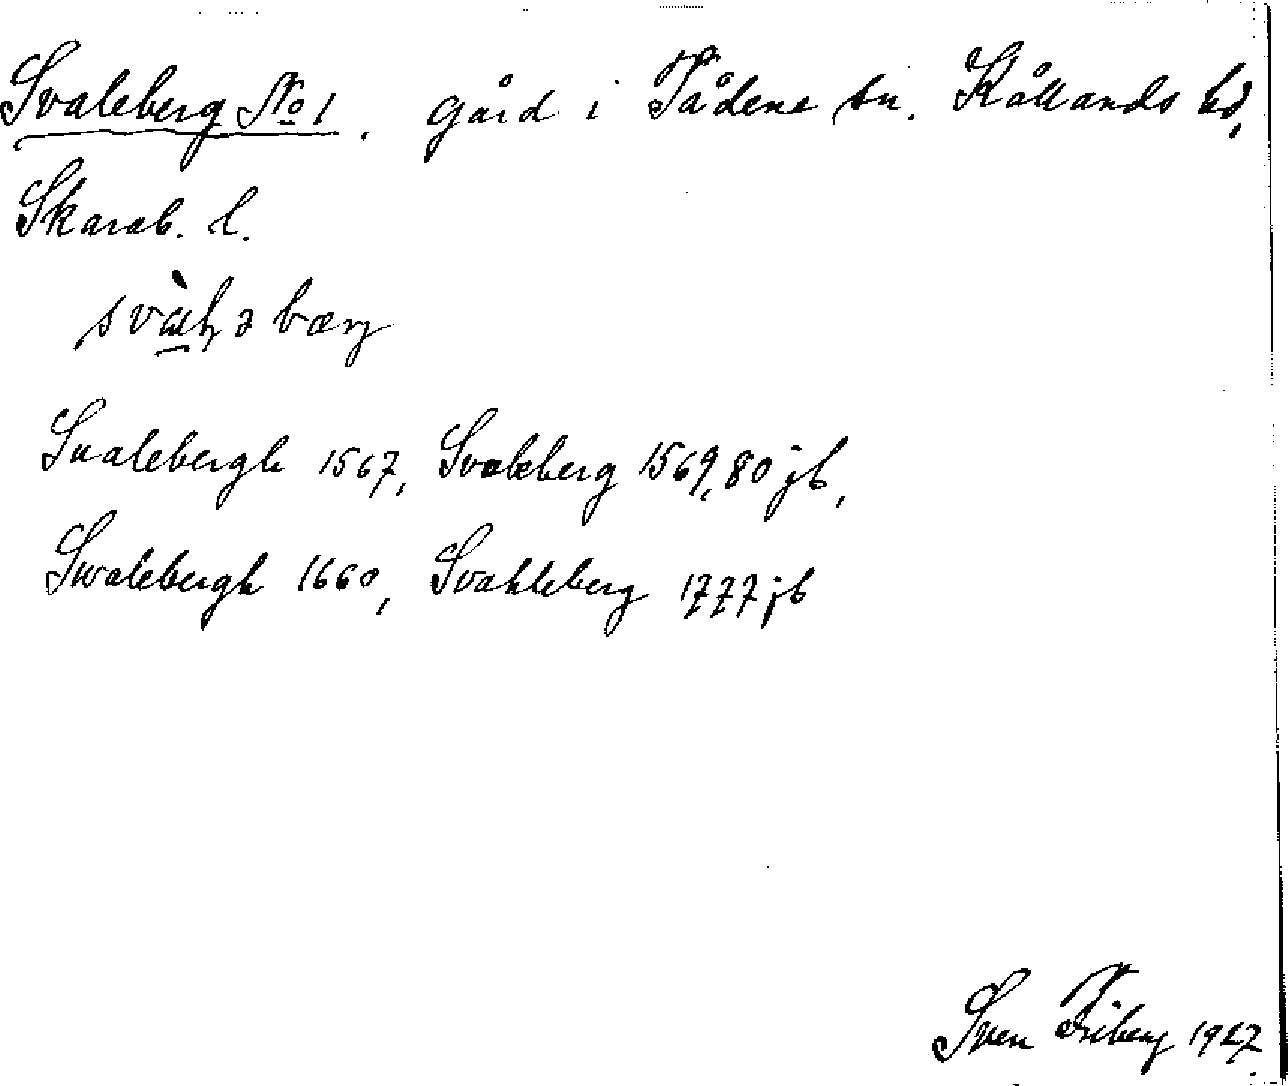 Svaleberg No 1. gård i Tådene sn. Kållands hd,
Skarab. l.
svàləbærj
Sualebergh 1567, Svaleberg 1569, 80 jb,
Swalebergh 1660, Svahleberg 1777 jb
Sven Friberg 1927